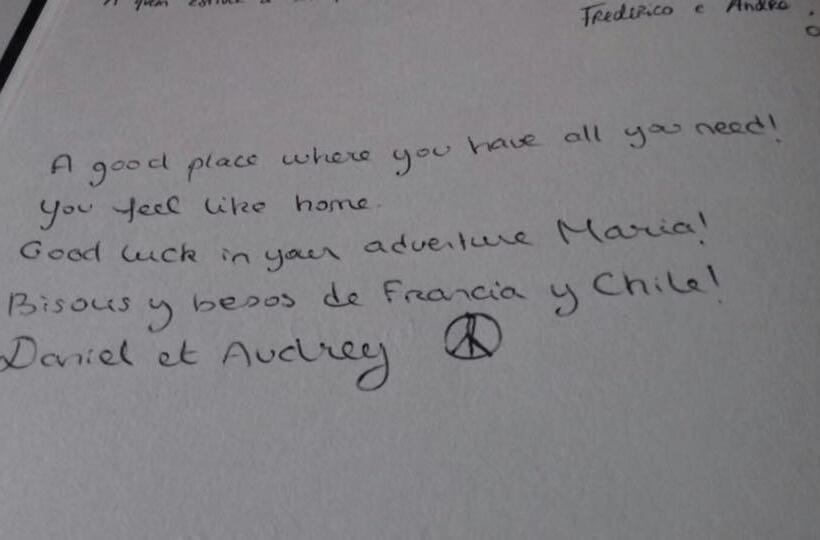 Frederico e Andrea
A good place where you have all you need!
You feel like home.
Good luck in your adventure Maria!
Bisous y besos de Francia y Chile!
Daniel et Audrey